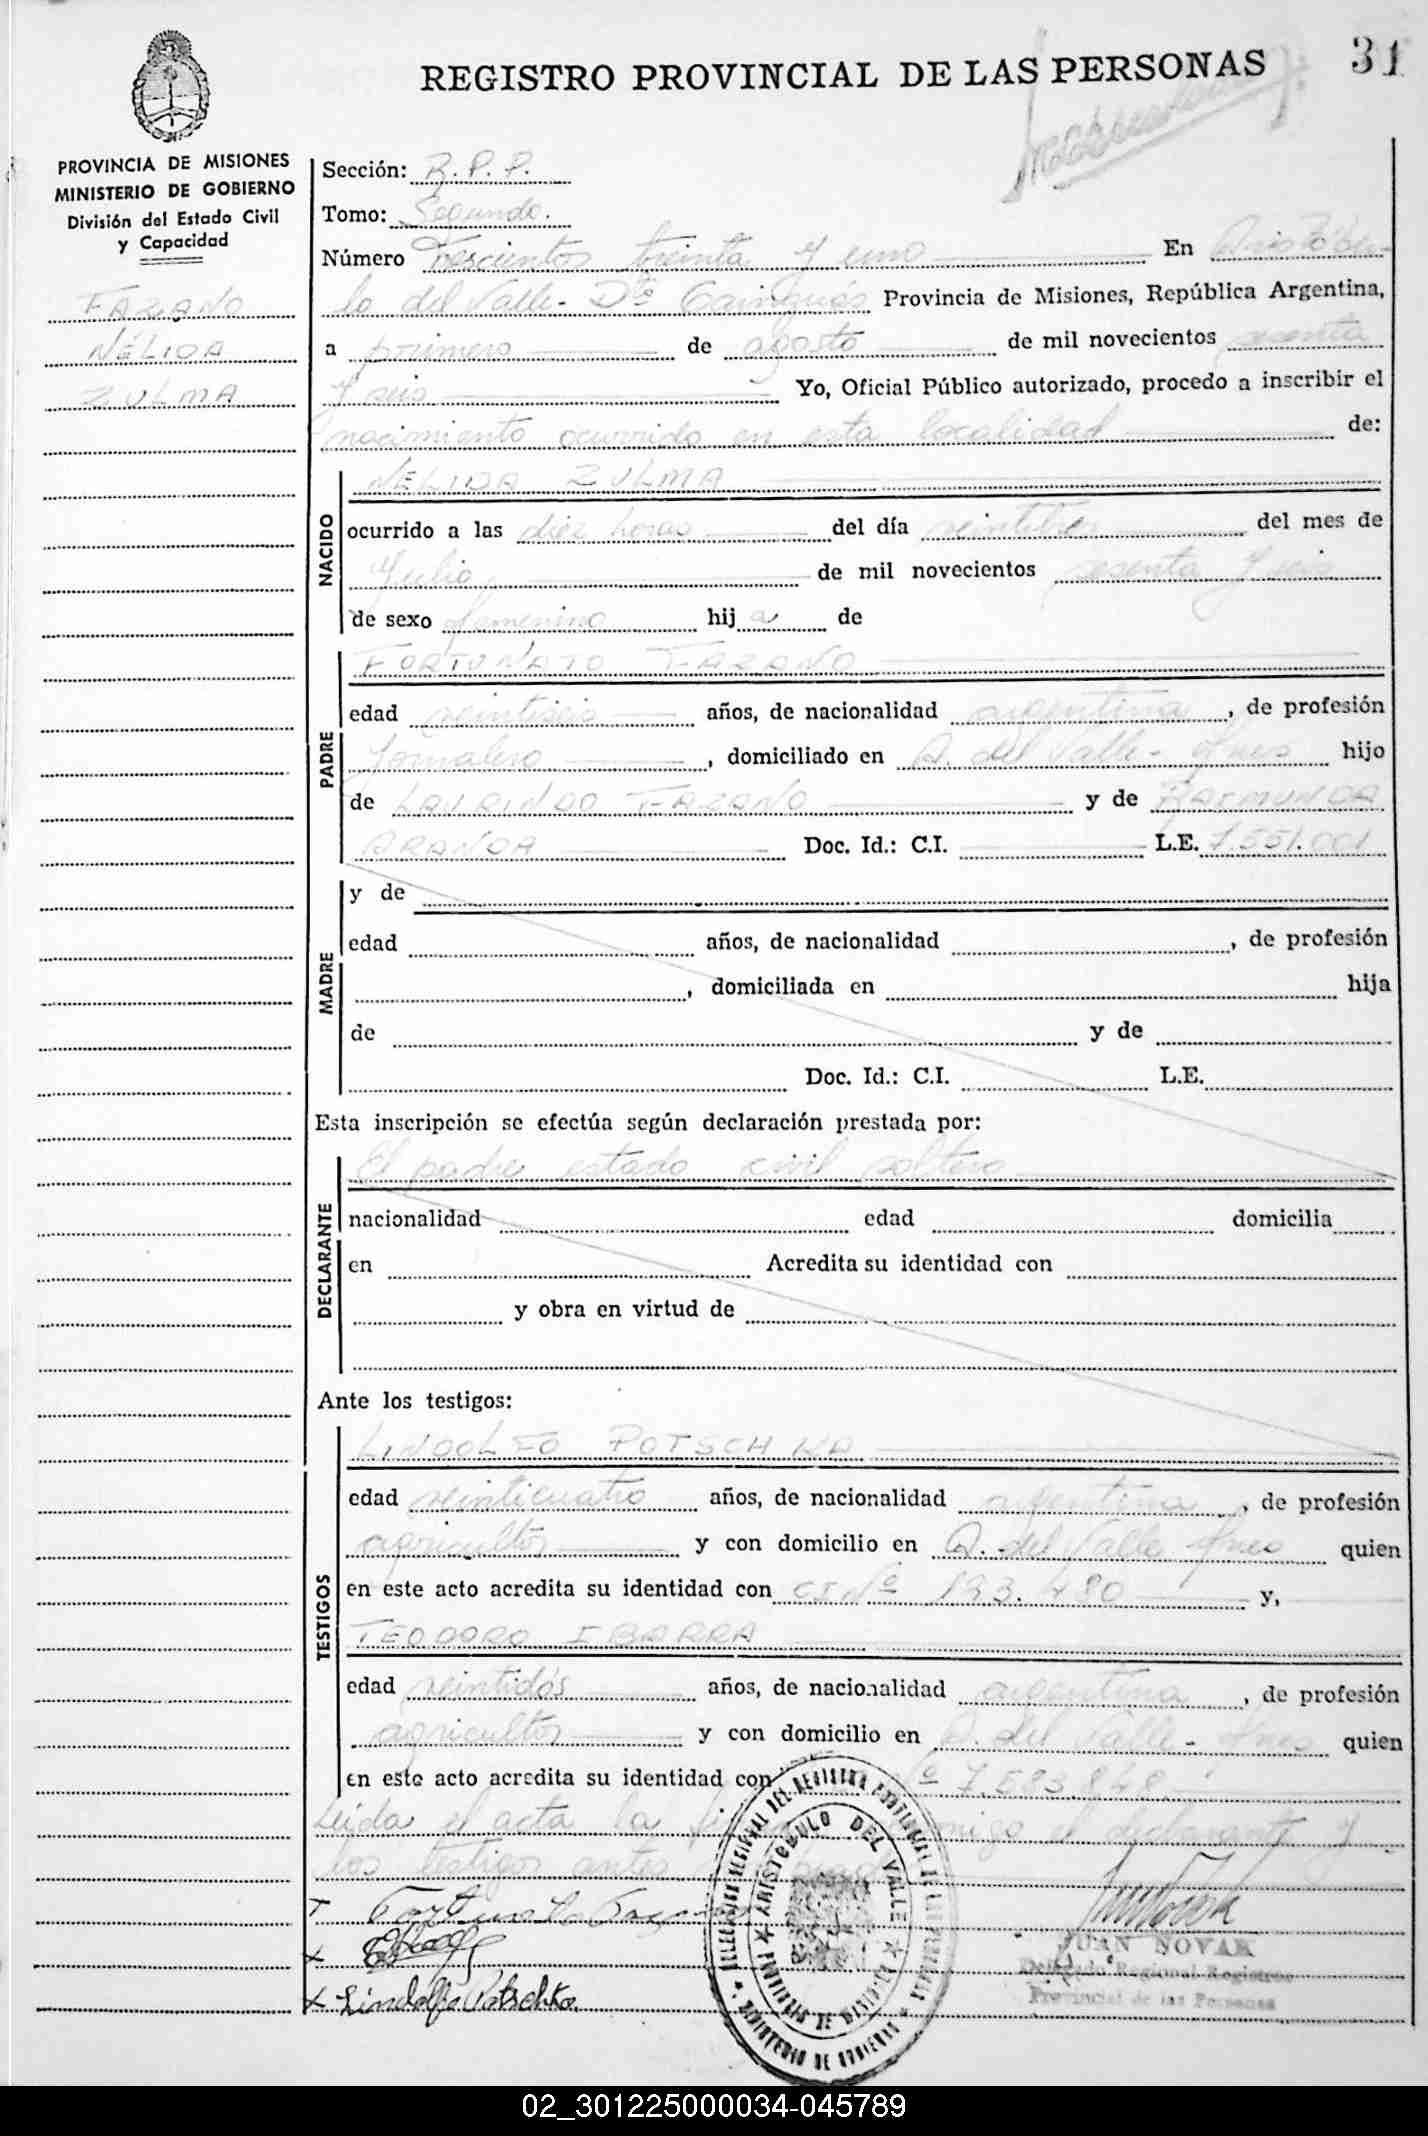 REGISTRO PROVINCIAL DE LAS PERSONAS
31
PROVINCIA DE MISIONES
MINISTERIO DE GOBIERNO
División del Estado Civil
y Capacidad
FAZANO
NÉLIDA
ZULMA
Sección: R.P.P.
Tomo: Segundo.
Número Trescientos treinta y uno En Aristóbu-
lo del Valle - Dto Cainguás Provincia de Misiones, República Argentina,
a primero de agosto de mil novecientos sesenta
y seis Yo, Oficial Público autorizado, procedo a inscribir el
nacimiento ocurrido en esta localidad de:
NACIDO
NÉLIDA ZULMA
ocurrido a las diez horas del día veintitres del mes de
Julio de mil novecientos sesenta y seis
de sexo femenino hij a de
PADRE
FORTUNATO FAZANO
edad veintiseis años, de nacionalidad argentina, de profesión
Jornalero, domiciliado en A. del Valle - Mnes hijo
de LAURINDO FAZANO y de RAIMUNDA
ARANDA Doc. Id.: C.I. L.E. 7.551.001
MADRE
y de
edad años, de nacionalidad , de profesión
, domiciliada en hija
de y de
Doc. Id.: C.I. L.E.
Esta inscripción se efectúa según declaración prestada por:
DECLARANTE
El padre estado civil soltero
nacionalidad edad domicilia
en Acredita su identidad con
y obra en virtud de
Ante los testigos:
TESTIGOS
LINDOLFO POTSCHKA
edad veinticuatro años, de nacionalidad argentina, de profesión
agricultor y con domicilio en A. del Valle Mnes quien
en este acto acredita su identidad con CI Nº 193.480 y,
TEODORO IBARRA
edad veintidós años, de nacionalidad argentina, de profesión
agricultor y con domicilio en A. del Valle - Mnes quien
en este acto acredita su identidad con Nº 7.583.848
Leída el acta la conmigo el declarante y
los testigos antes
Fortunato Fazano
Lindolfo Potschka
DELEGACION REGIONAL DEL REGISTRO PROVINCIAL DE LAS PERSONAS
ARISTOBULO DEL VALLE
PROVINCIA DE MISIONES
MINISTERIO DE GOBIERNO
JUAN NOVAK
Delegado Regional Registro
Provincial de las Personas
02_301225000034-045789